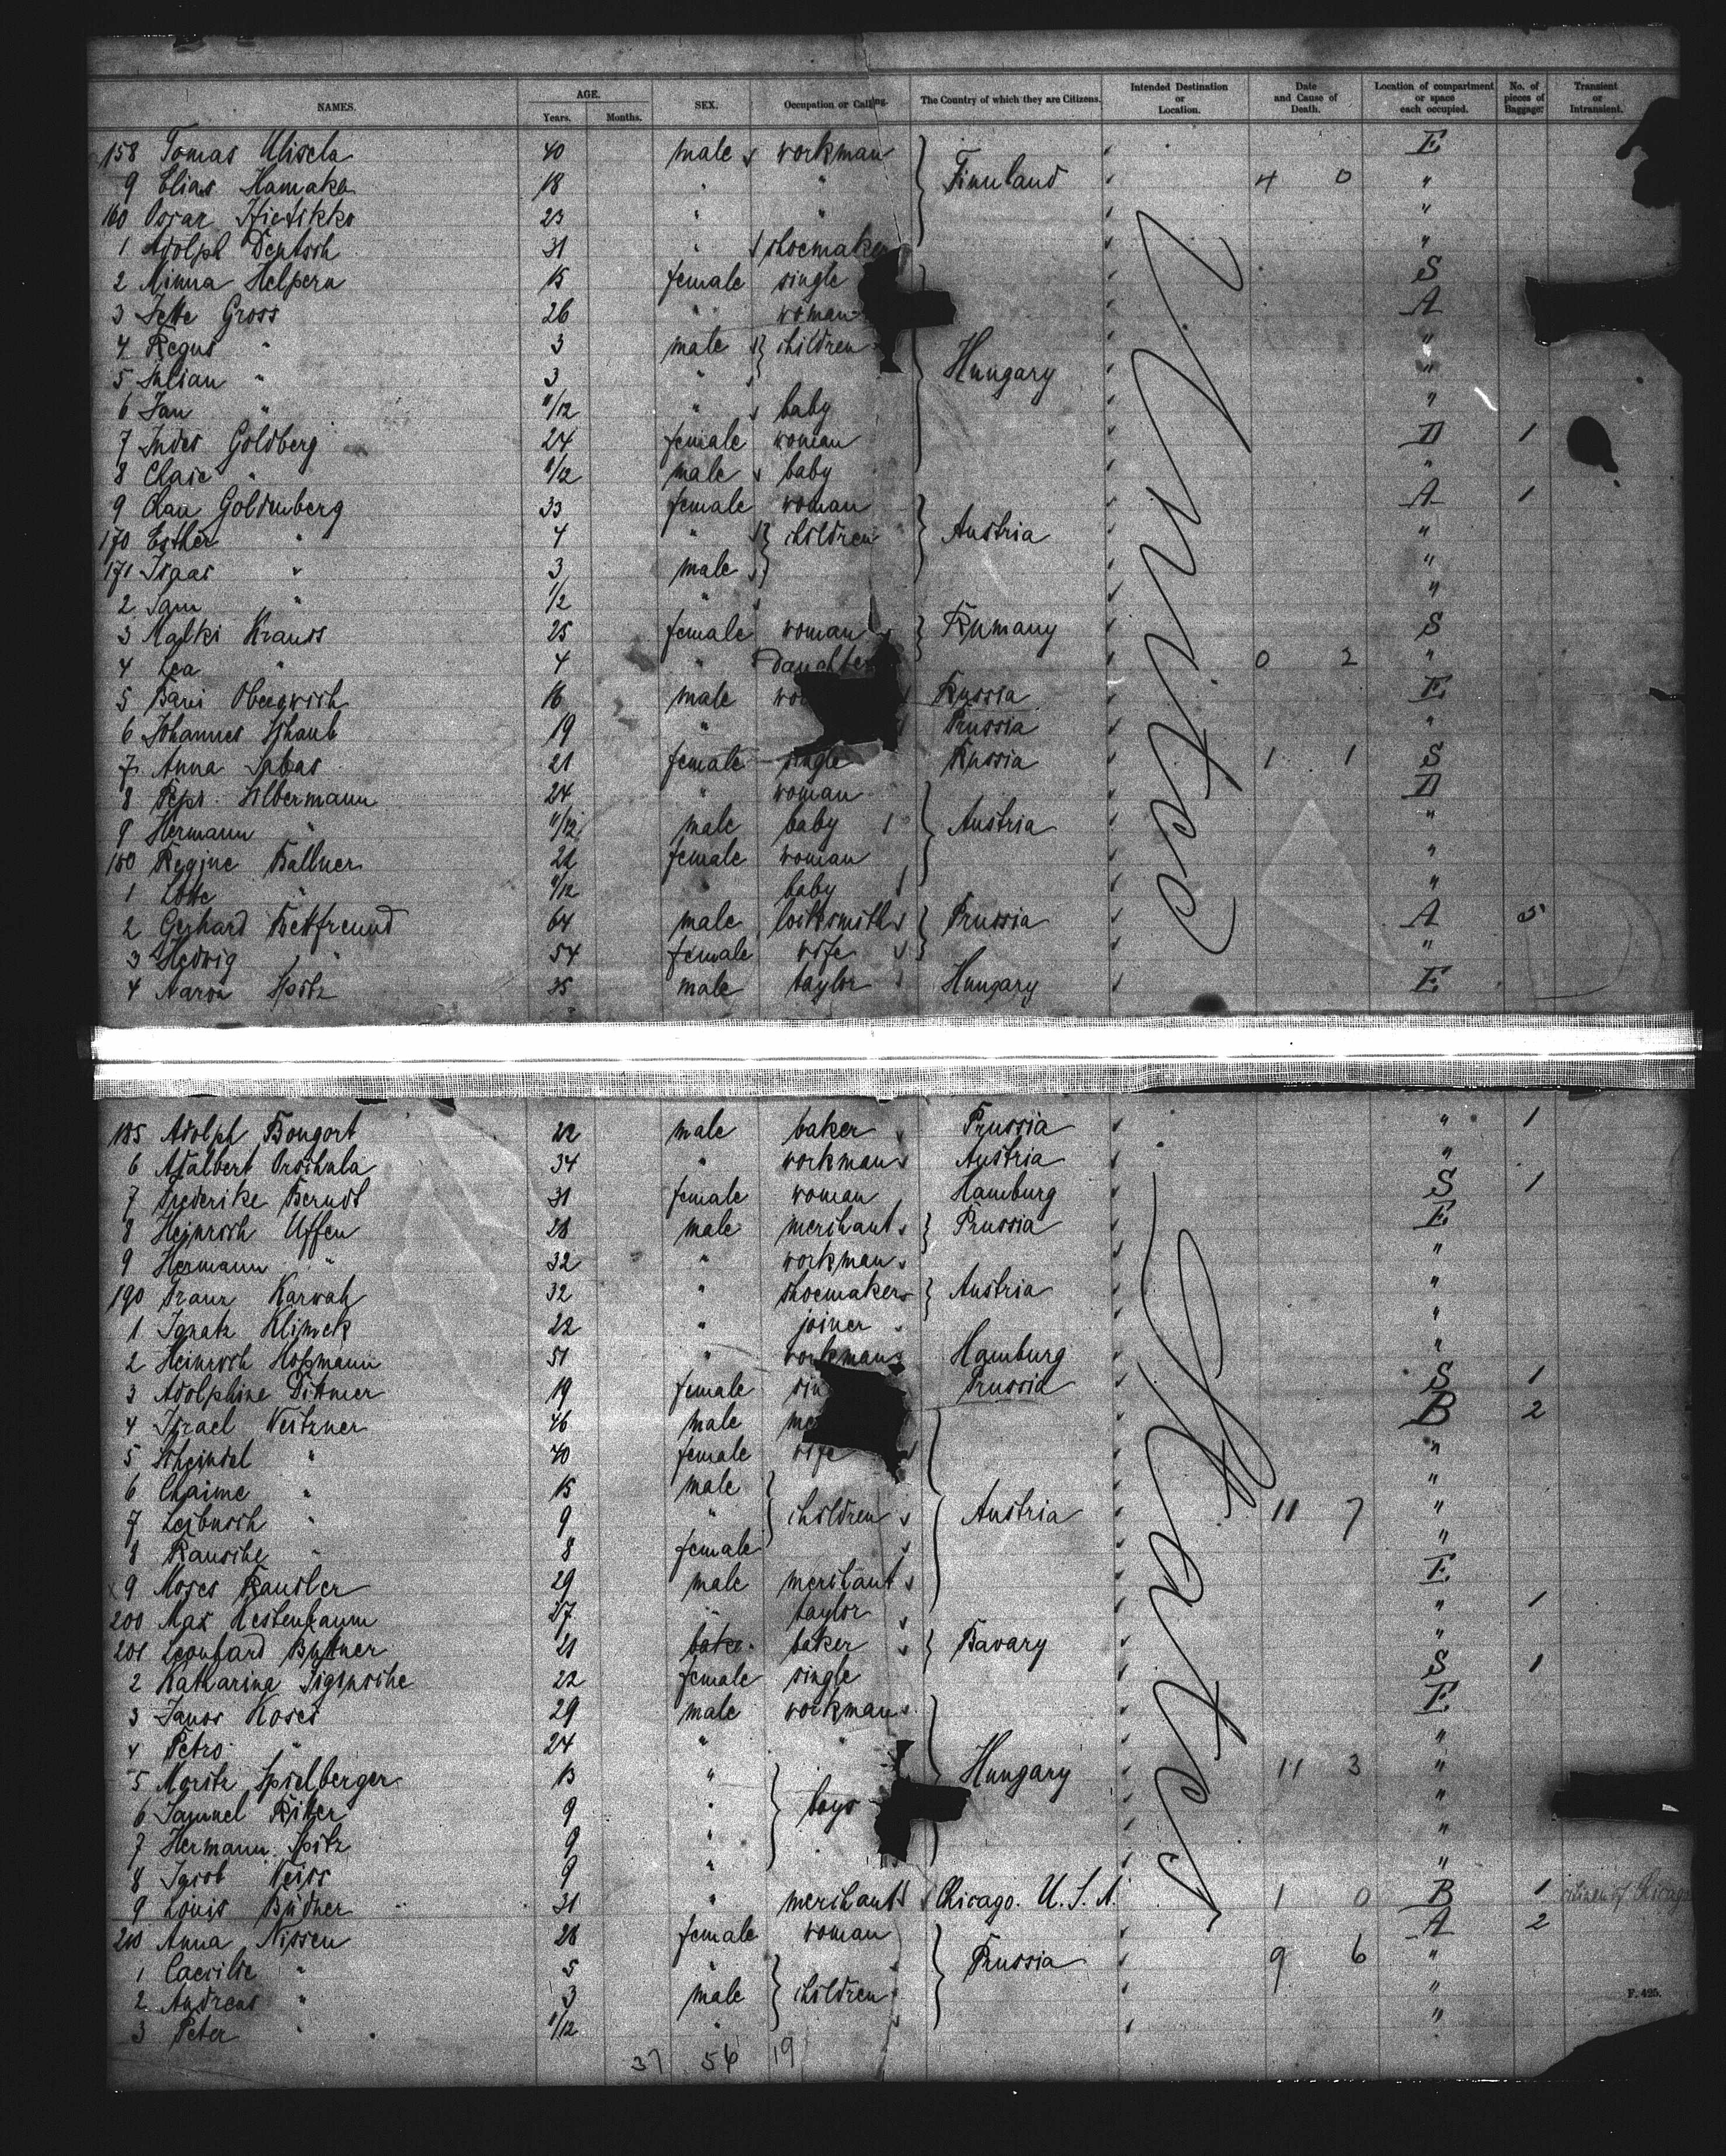 NAMES. AGE. Years. Months. SEX. Occupation or Calling. The Country of which they are Citizens. Intended Destination or Location. Date and Cause of Death. Location of compartment or space each occupied. No. of pieces of Baggage. Transient or Intransient.
158 Tomas 40 male workman E
9 Elias Hamaka 18 " " Finnland 4 0 "
160 Oscar 23 " " "
1 Adolph Deutsch 31 " shoemaker "
2 Minna Helpern 15 female single S
3 Jette Gross 26 " woman A
4 " 3 male children "
5 Julian " 3 " Hungary "
6 Jan " 11/12 " baby "
7 Goldberg 24 female woman D 1
8 " 11/12 male baby "
9 Goldenberg 33 female woman A 1
170 Esther " 4 " children Austria "
171 Isaac " 3 male "
2 Sam " 1/2 " "
3 Malki Krauss 25 female woman Rumany S
4 Lea " 4 " Daughter 0 2 "
5 16 male Russia E
6 Johannes Schaub 19 " Prussia "
7 Anna 21 female single Russia 1 1 S
8 Pepi Silbermann 24 " woman D
9 Hermann " 11/12 male baby Austria "
180 Regine 22 female woman "
1 Lotte " 11/12 baby "
2 Gerhard Bettfreund 64 male locksmith Prussia A 5
3 Hedwig " 54 female wife "
4 Aaron Spitz 35 male taylor Hungary E
185 Adolph Bongort 22 male baker Prussia " 1
6 Adalbert 34 " workman Austria "
7 Frederike Berndt 31 female woman Hamburg S 1
8 Heinrich Uffen 28 male merchant Prussia E
9 Hermann " 32 " workman "
190 Franz 32 " shoemaker Austria "
1 Ignatz Klimek 22 " joiner "
2 Heinrich Hofmann 51 " workman Hamburg "
3 Adolphine Dittmer 19 female sin Prussia S 1
4 Israel 46 male me B 2
5 Scheindel " 40 female wife "
6 Chaime " 15 male "
7 Leibusch " 9 " children Austria 11 7 "
8 " 8 female "
9 Moses 29 male merchant E
200 Max Nestenbaum 27 " taylor " 1
201 Leonhard 21 baker Bavary "
2 Katharina 22 female single S 1
3 Janos Koses 29 male workman E
4 Petro " 24 " " "
5 Moritz Spielberger 13 " Hungary 11 3 "
6 Samuel 9 " boys "
7 Hermann Spitz 9 " "
8 Jacob Weiss 9 " "
9 Louis Büdner 31 " merchant Chicago. U. S. A. 1 0 B 1 citizen of Chicago
210 Anna Nissen 28 female woman A 2
1 Caecilie " 5 " Prussia 9 6 "
2 Andreas " 3 male children "
3 Peter " 11/12 " "
F. 425.
37 56 19